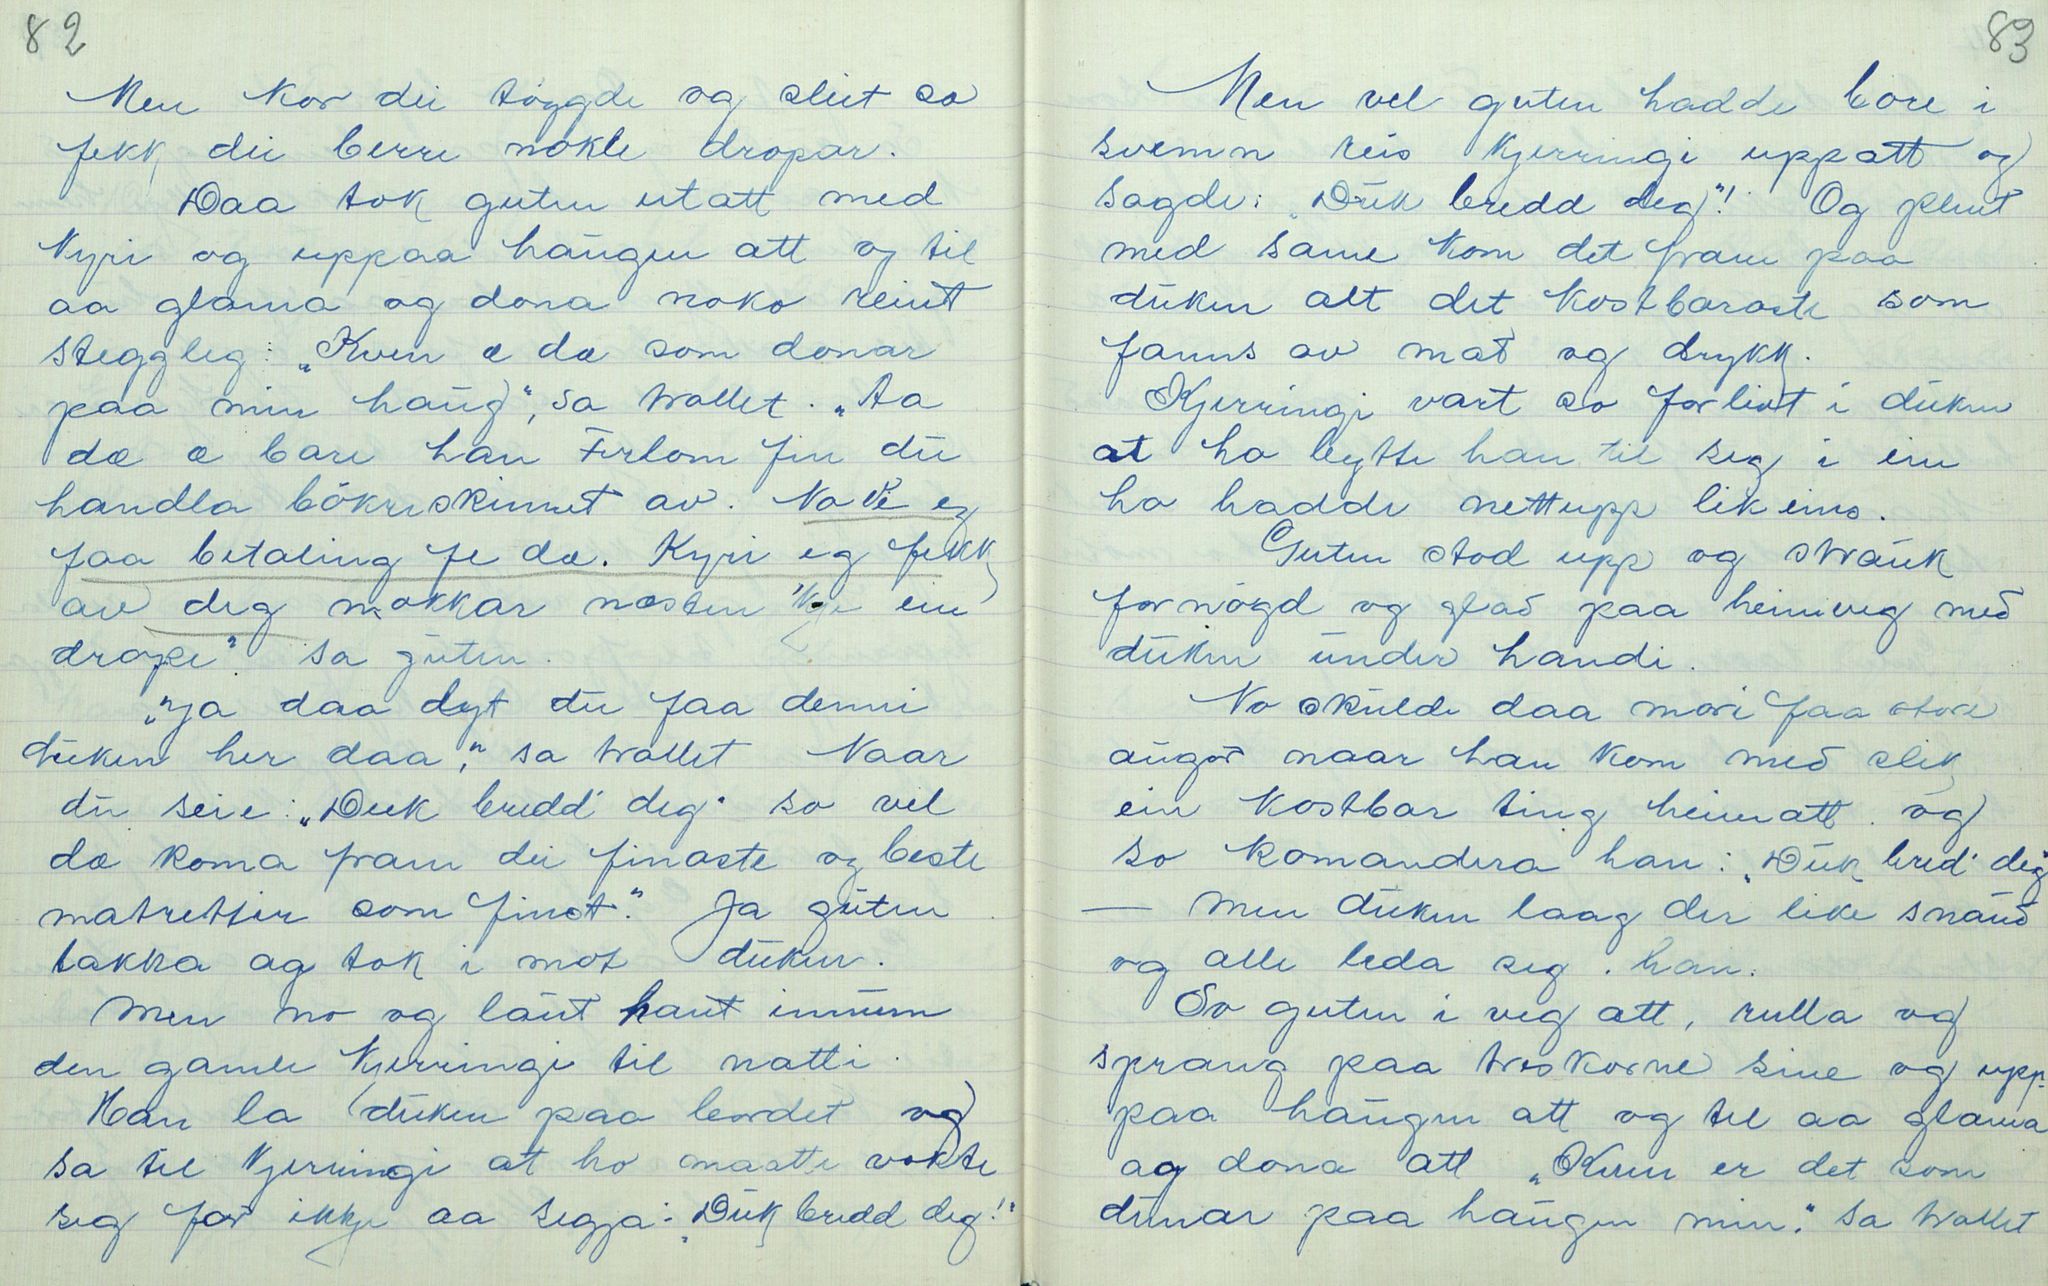 82
Men kor dei töygde og sleit so
fekk dei berre nokle dropar.
Daa tok guten utatt med
kyri og uppaa haugen att og til
aa glama og dona noko reint
steggleg: „Kven æ dæ som donar
paa min haug", sa trollet. „Aa
dæ æ bare han Ferlom fin du
handla bökreskinnet av. No vi eg
faa betaling fe dæ. Kyri eg fekk
av deg mokkar næsten 'kje ein
drope" sa guten.
„Ja daa dyt du faa denni
duken her daa," sa trollet Naar
du seie: „Duk bredd' deg" so vil
dæ koma fram dei finaste og beste
matrettir som finst." Ja guten
takka og tok i mot duken.
Men no og laut hant innum
den gamle kjerringi til natti.
Han la duken paa bordet og
sa til kjerringi at ho maatte vokte
seg for ikkje aa segja: „Duk bredd deg!"
83
Men vel guten hadde bore i
svemn reis kjerringi uppatt og
sagde: „Duk bredd deg"! Og plent
med same kom det fram paa
duken alt det kostbaraste som
fanns av mat og drykk.
Kjerringi vart so forlivt i duken
at ho bytte han til seg i ein
ho hadde nettupp likeins.
Guten stod upp og strauk
fornögd og glad paa heimveg med
duken under handi.
No skulde daa mori faa store
augor naar han kom med slik
ein kostbar ting heimatt. og
so komandera han: „Duk bred' deg"
— men duken laag der like snaud
og alle leda seg. han.
So guten i veg att, rulla og
sprang paa treskorne sine og upp-
paa haugen att og til aa glama
og dona att „Kven er det som
dunar paa haugen min." sa trollet